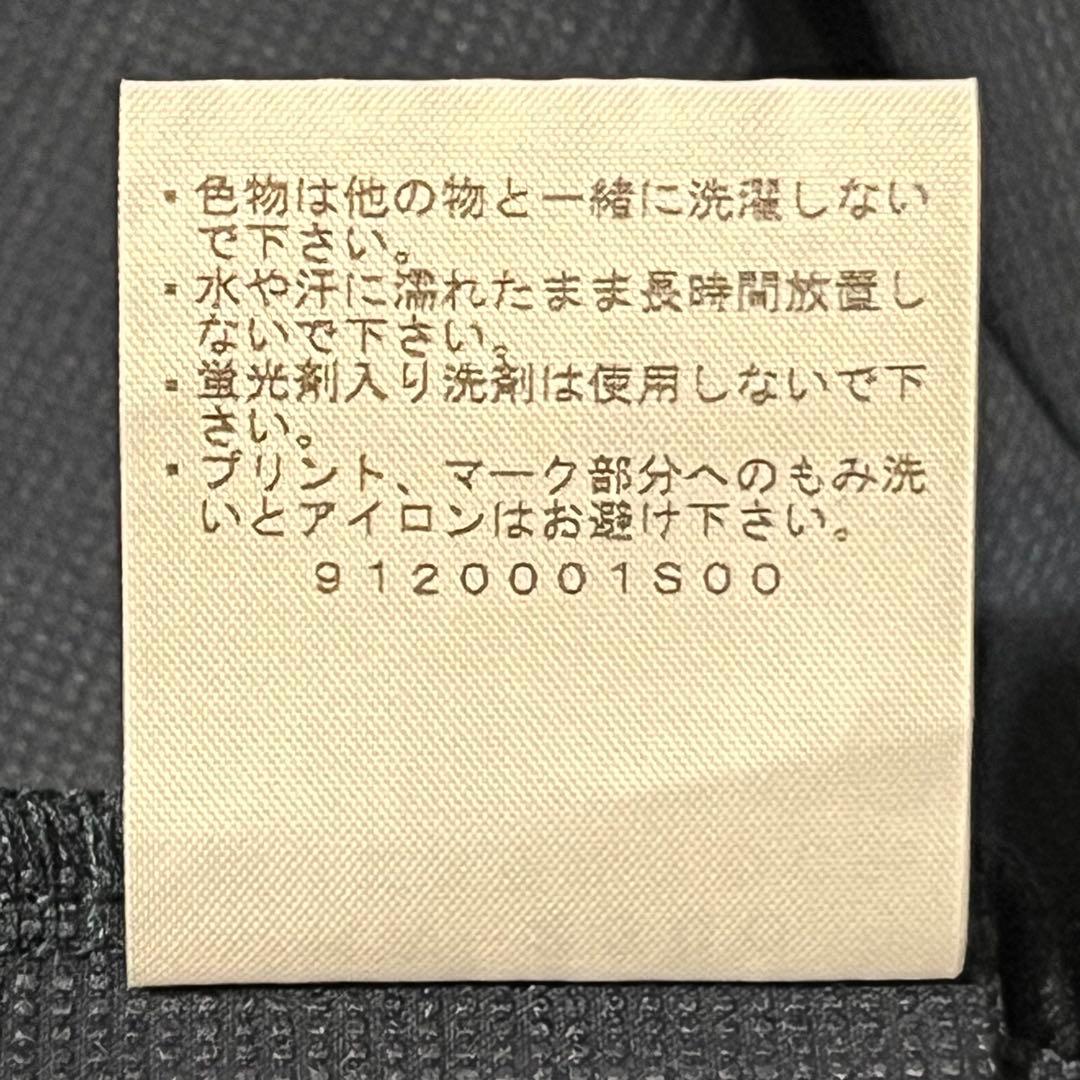 ・色物は他の物と一緒に洗濯しない
で下さい。
・水や汗に濡れたまま長時間放置し
ないで下さい。
・蛍光剤入り洗剤は使用しないで下
さい。
・プリント、マーク部分へのもみ洗
いとアイロンはお避け下さい。
9120001S00